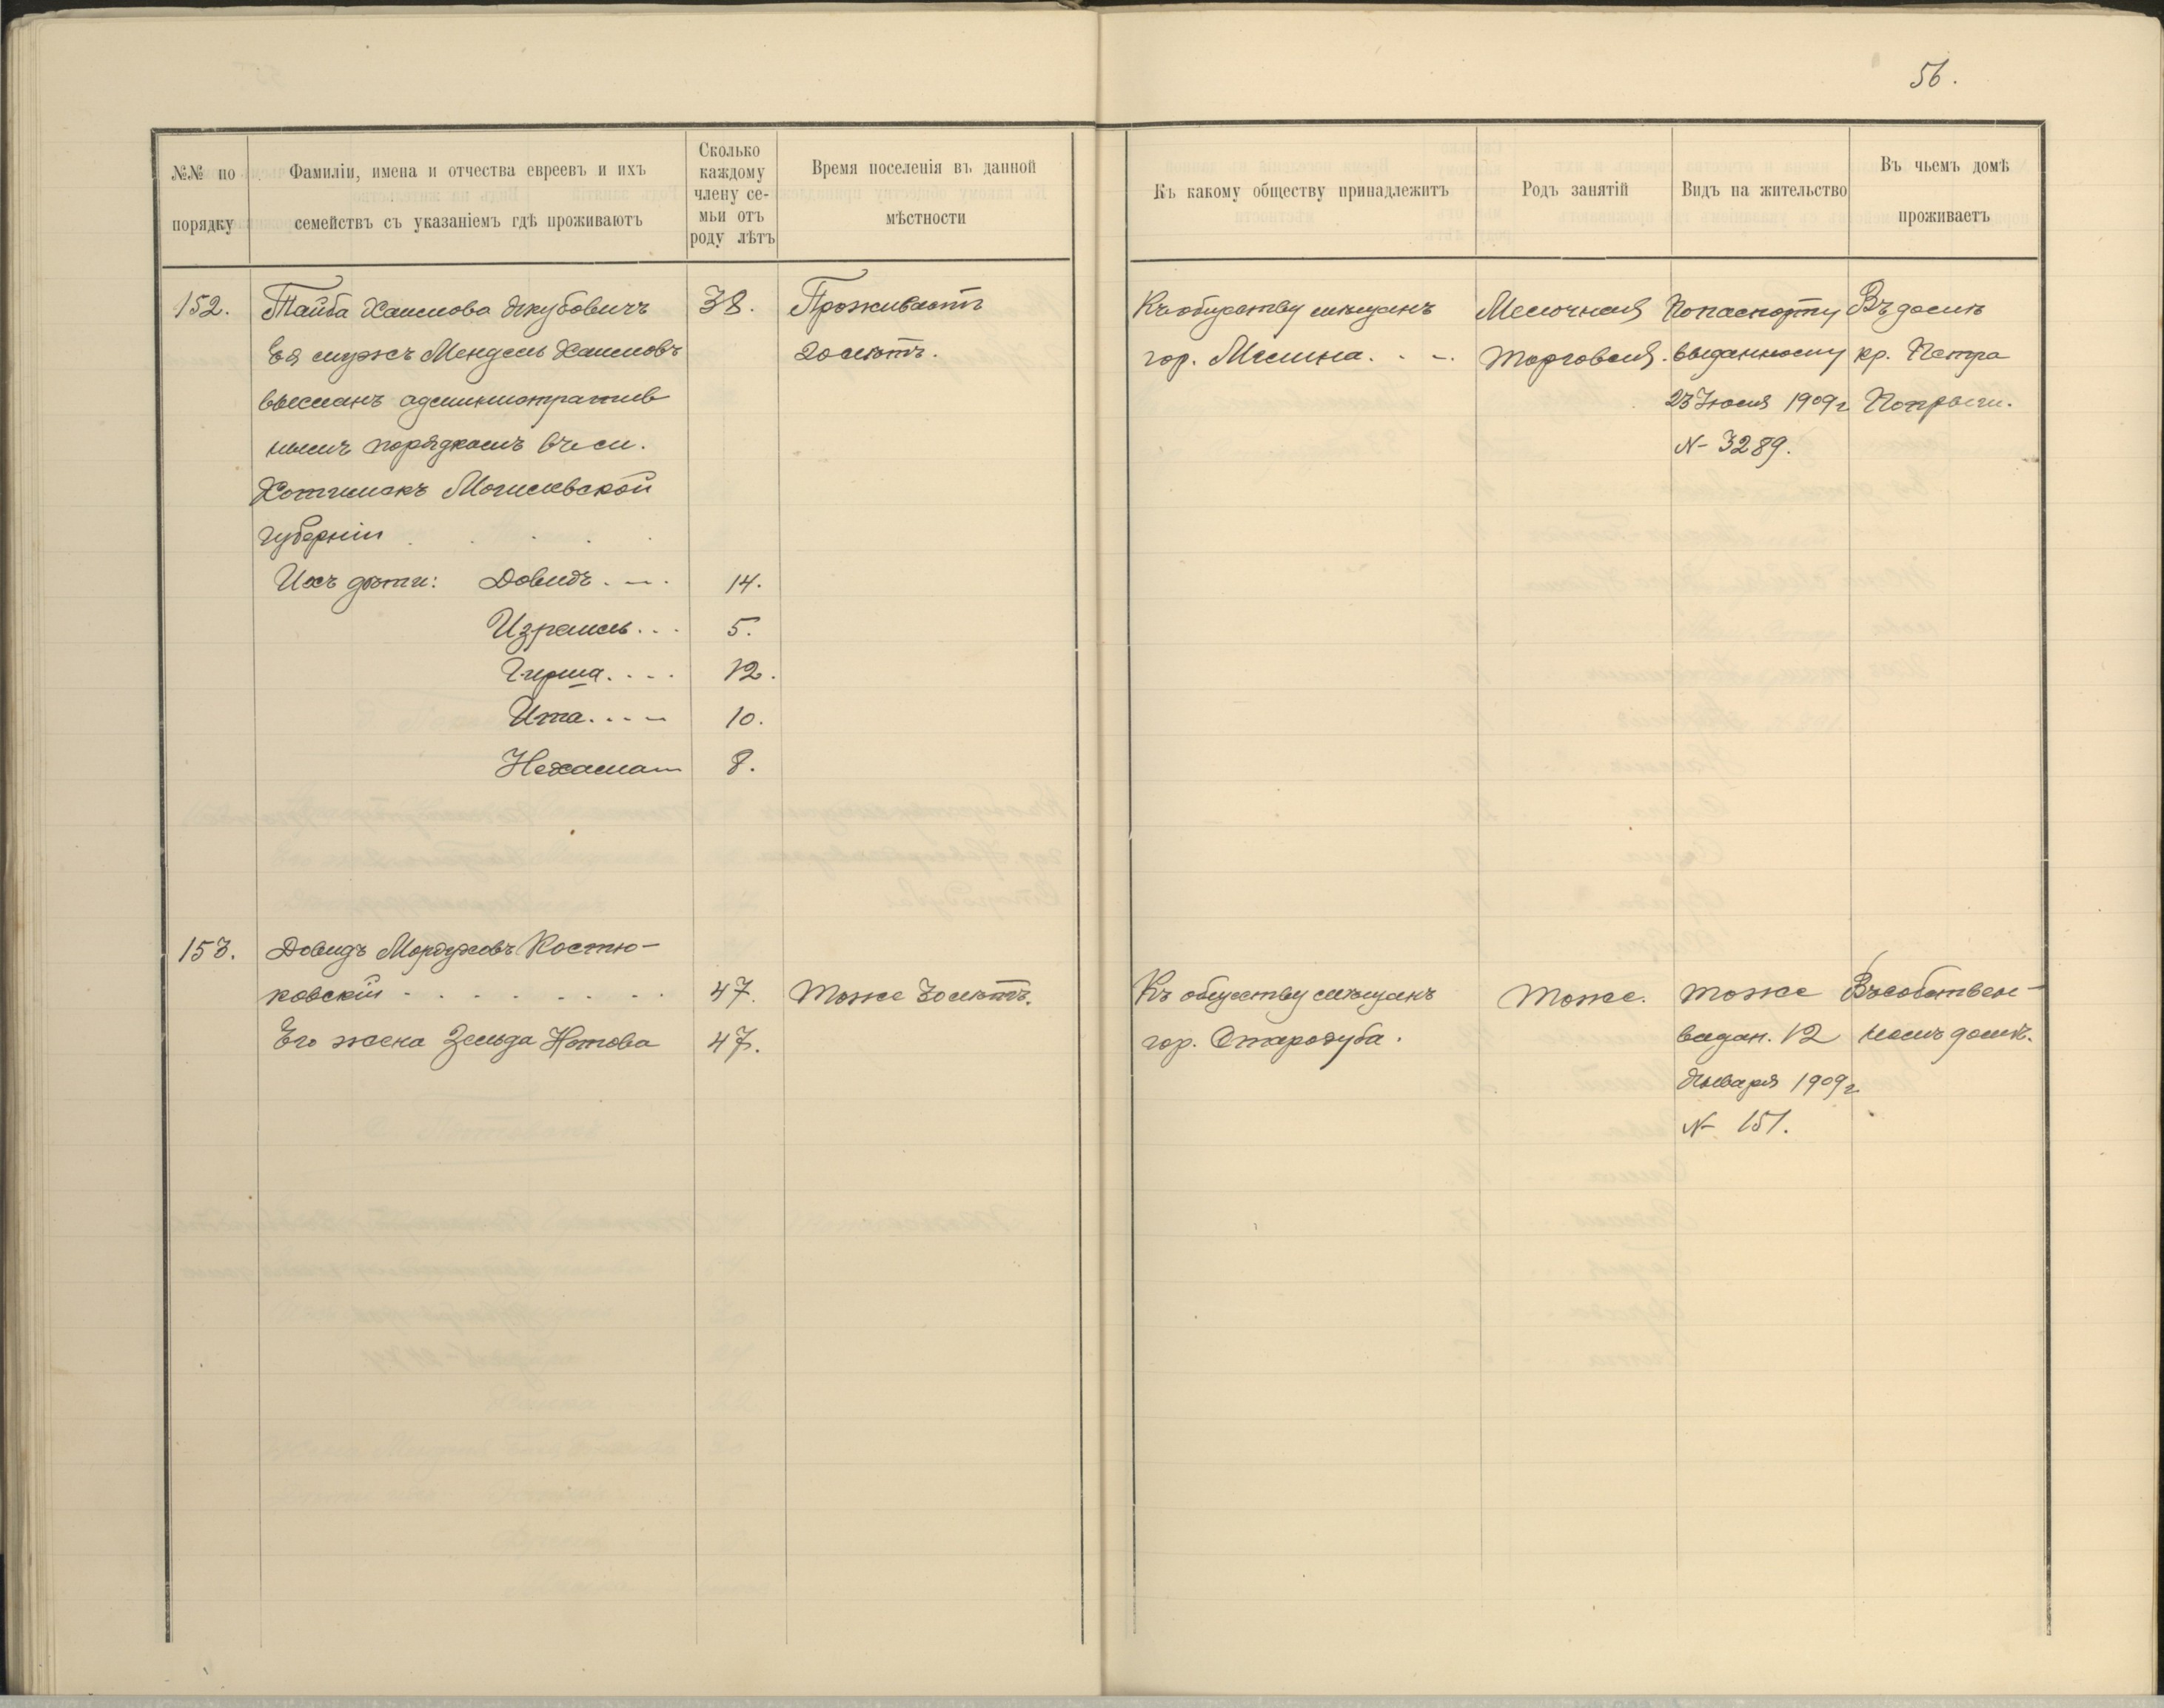 56.
№№ по
порядку
Фамиліи, имена и отчества евреевъ и ихъ
семействъ съ указаніемъ гдѣ проживаютъ
Сколько
каждому
члену се-
мьи отъ
роду лѣтъ
Время поселенія въ данной
мѣстности
Къ какому обществу принадлежитъ
Родъ занятій
Видъ на жительство
Въ чьемъ домѣ
проживаетъ
152.
Тайба Хаимова Якубовичъ
Ея мужъ Мендель Хаимовъ
высланъ административ
нымъ порядкомъ въ м.
Хотимскъ Могилевской
губерніи
Ихъ дѣти: Довидъ
Израиль
Гирша
Ита
Нехама
38.
14.
5.
12.
10.
8.
Проживаетъ
20 лѣтъ.
Къ обществу мѣщанъ
гор. Мглина.
Мелочная
торговля.
По паспорту
выданному
23 Іюля 1909 г
№ 3289.
Въ домѣ
кр. Петра
153.
Довидъ Мордуховъ Костю-
ковскій
Его жена Зельда Нотова
47.
47.
Тоже 30 лѣтъ.
Къ обществу мѣщанъ
гор. Стародуба.
Тоже.
тоже
выдан. 12
Января 1909 г
№ 151.
Въ собствен-
номъ домѣ.